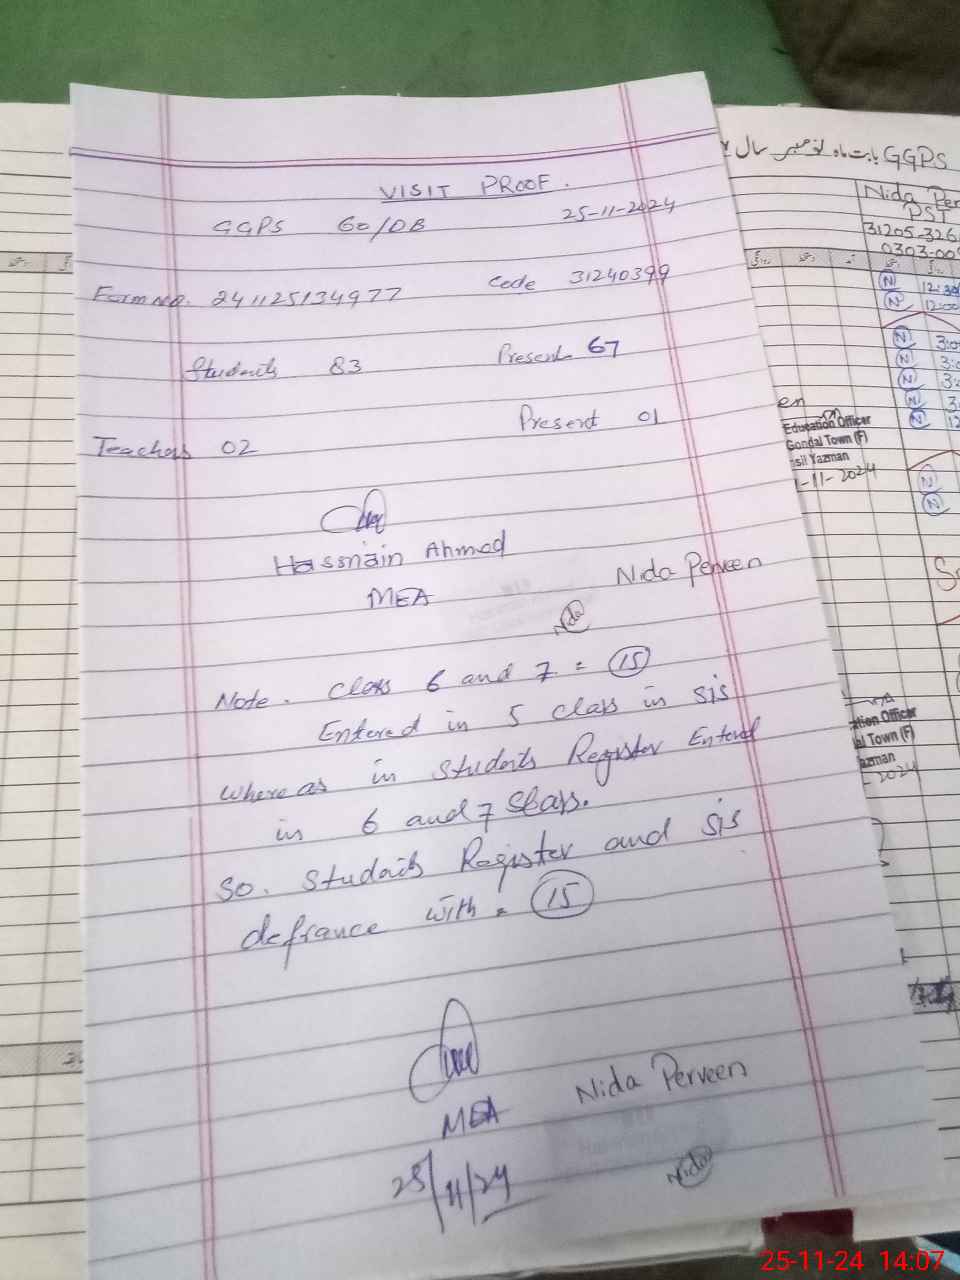 VISIT PROOF.
GGPS 60/DB 25-11-2024
Form No. 241125134977 Code 31240399
Students 83 Present 67
Teachers 02 Present 01
Hassnain Ahmed
MEA
Nida Perveen
Nida
Note. Class 6 and 7 = 15
Entered in 5 class in SiS
where as in Students Register Entered
in 6 and 7 Slass.
So. Students Register and SiS
defrance with = 15
MEA
Nida Perveen
25/11/24
Nida
GGPS بابت ماہ نومبر سال
Nida Per
PST
31205-326
0303-00
N 12:30
N 12:00
N 3:0
N 3:
N 3:
N 3
N 12
N
N
en
Education Officer
Gondal Town (F)
sil Yazman
-11-2024
tion Officer
al Town (F)
azman
2024
25-11-24 14:07